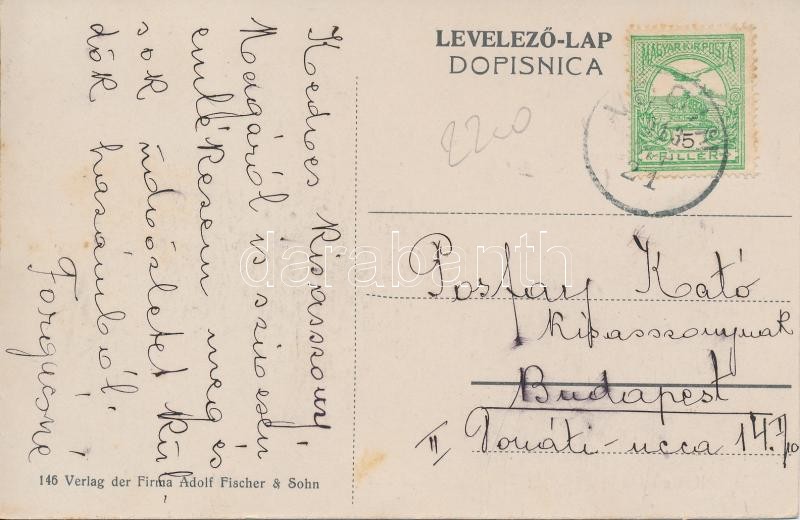 LEVELEZŐ-LAP
DOPISNICA
MAGYAR KIR. POSTA
FILLÉR
2200
21
Kedves Kisasszony!
Magáról is szivesen
emlékesem meg és
sok üdvözletet kül
dök hazámból.
Forgácsné
Posfay Kató
kisasszonynak
Budapest
II Donáti-ucca 14. I/10
146 Verlag der Firma Adolf Fischer & Sohn
darabanth